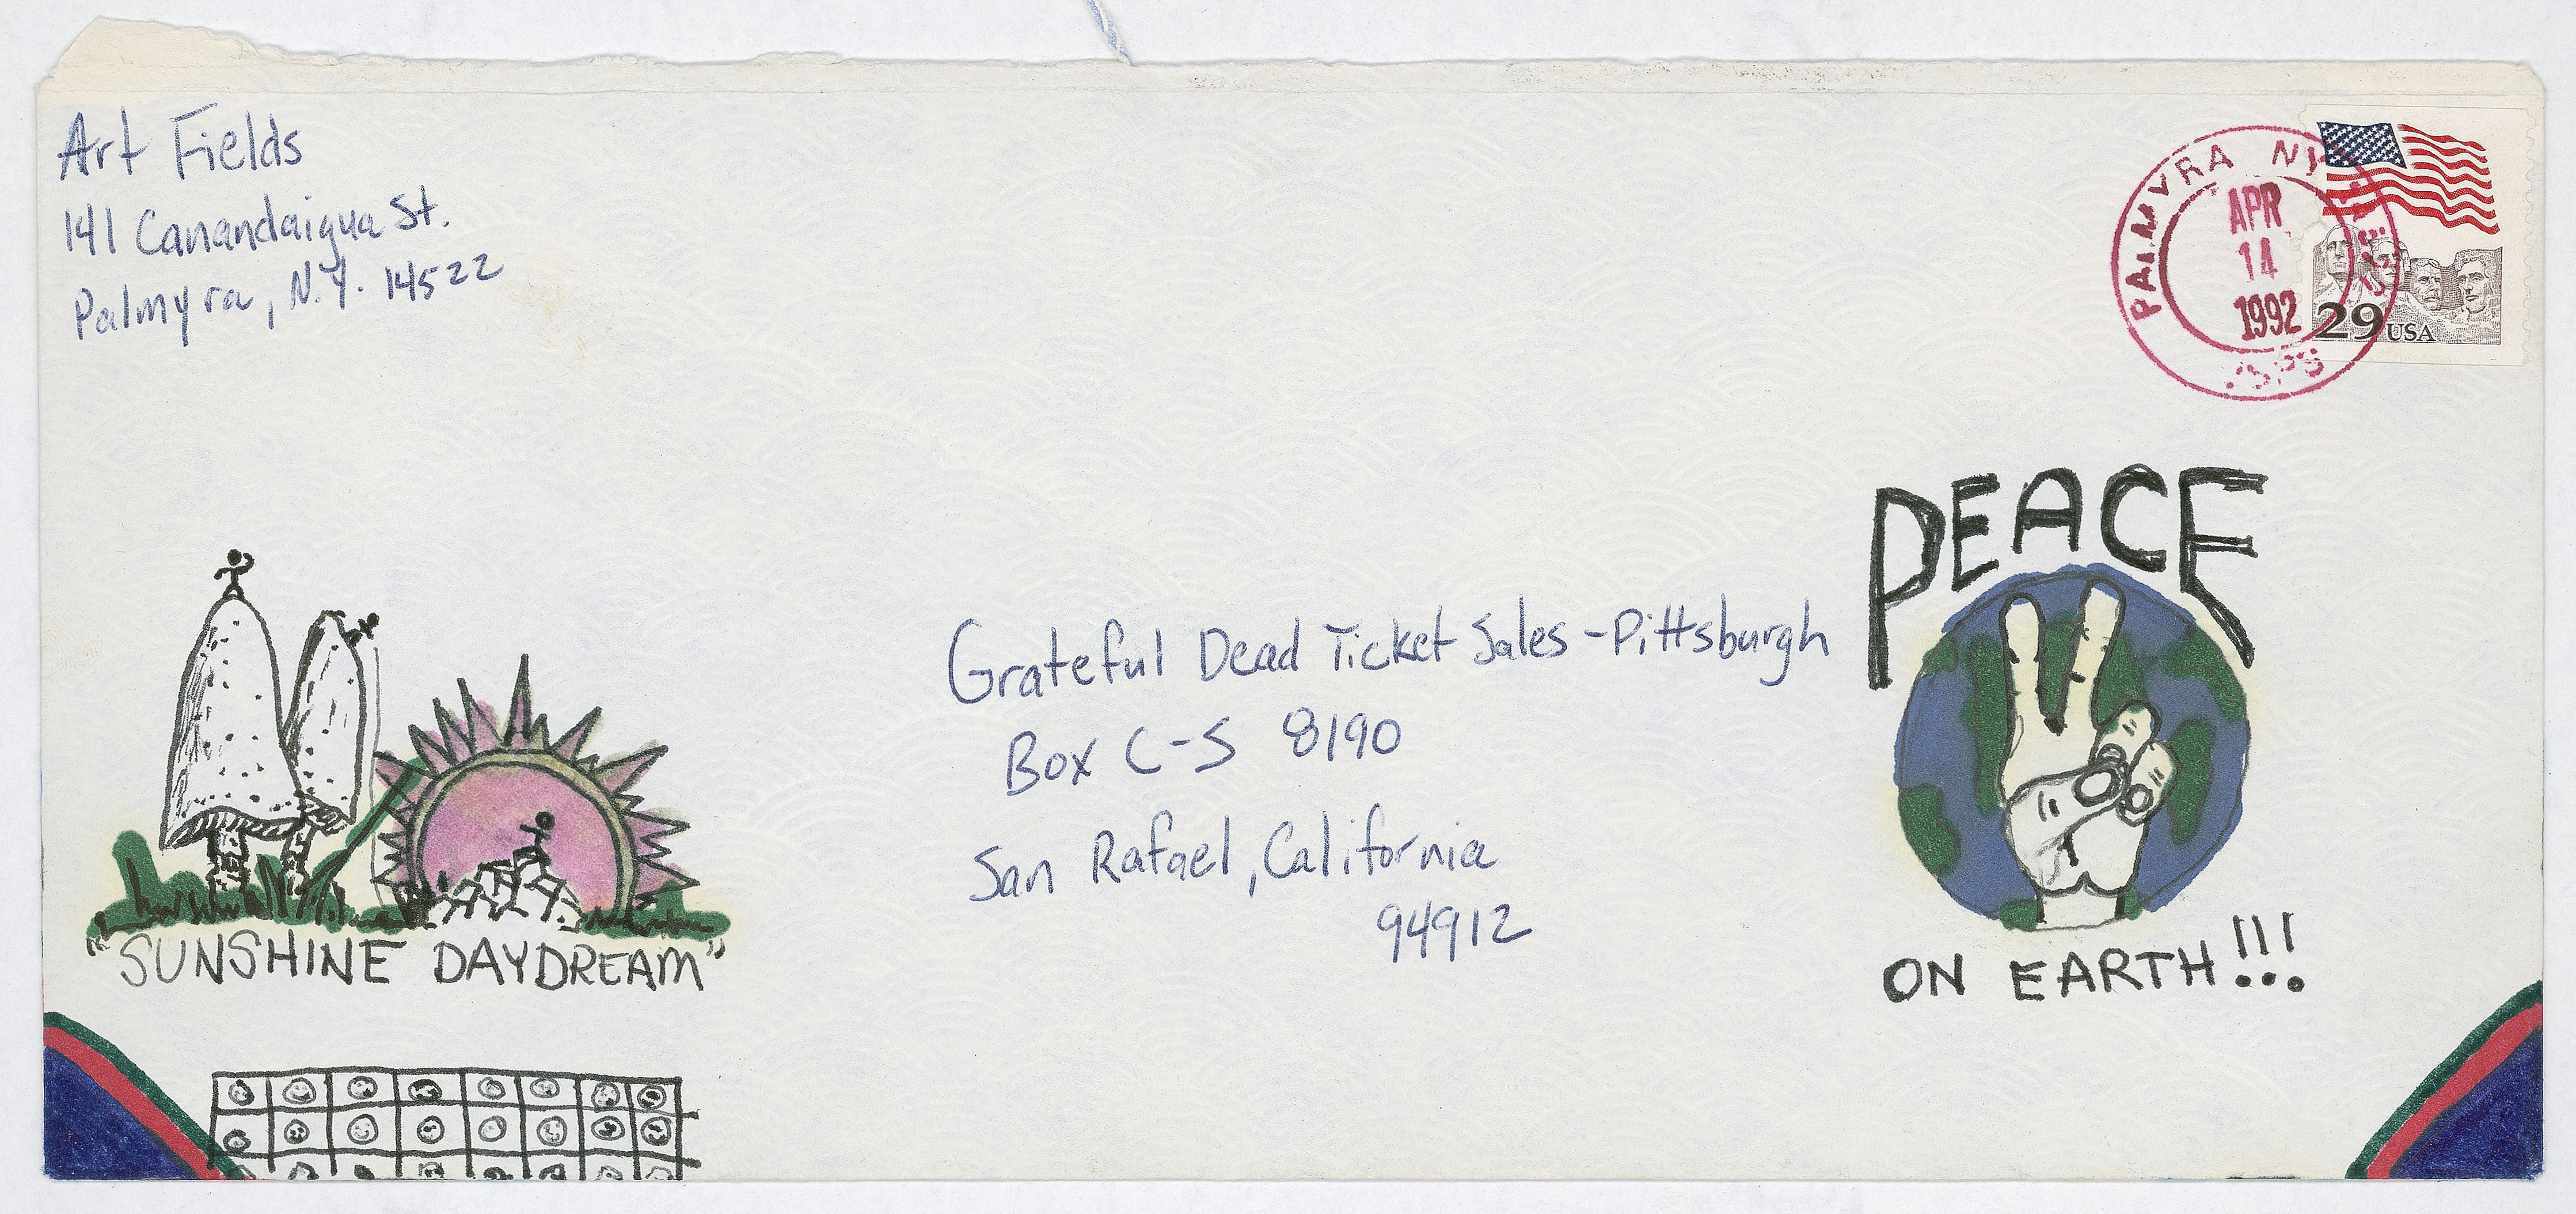 Art Fields
141 Canandaigua St.
Palmyra, N.Y. 14522
PALMYRA NY
APR
14
1992
USPS
29 USA
PEACE
ON EARTH!!!
Grateful Dead Ticket Sales - Pittsburgh
Box C-S 8190
San Rafael, California
94912
"SUNSHINE DAYDREAM"